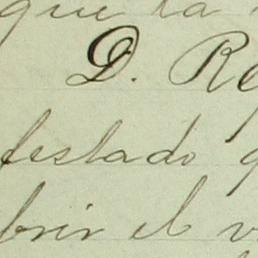 que la
D. Re
festado q
brir el v